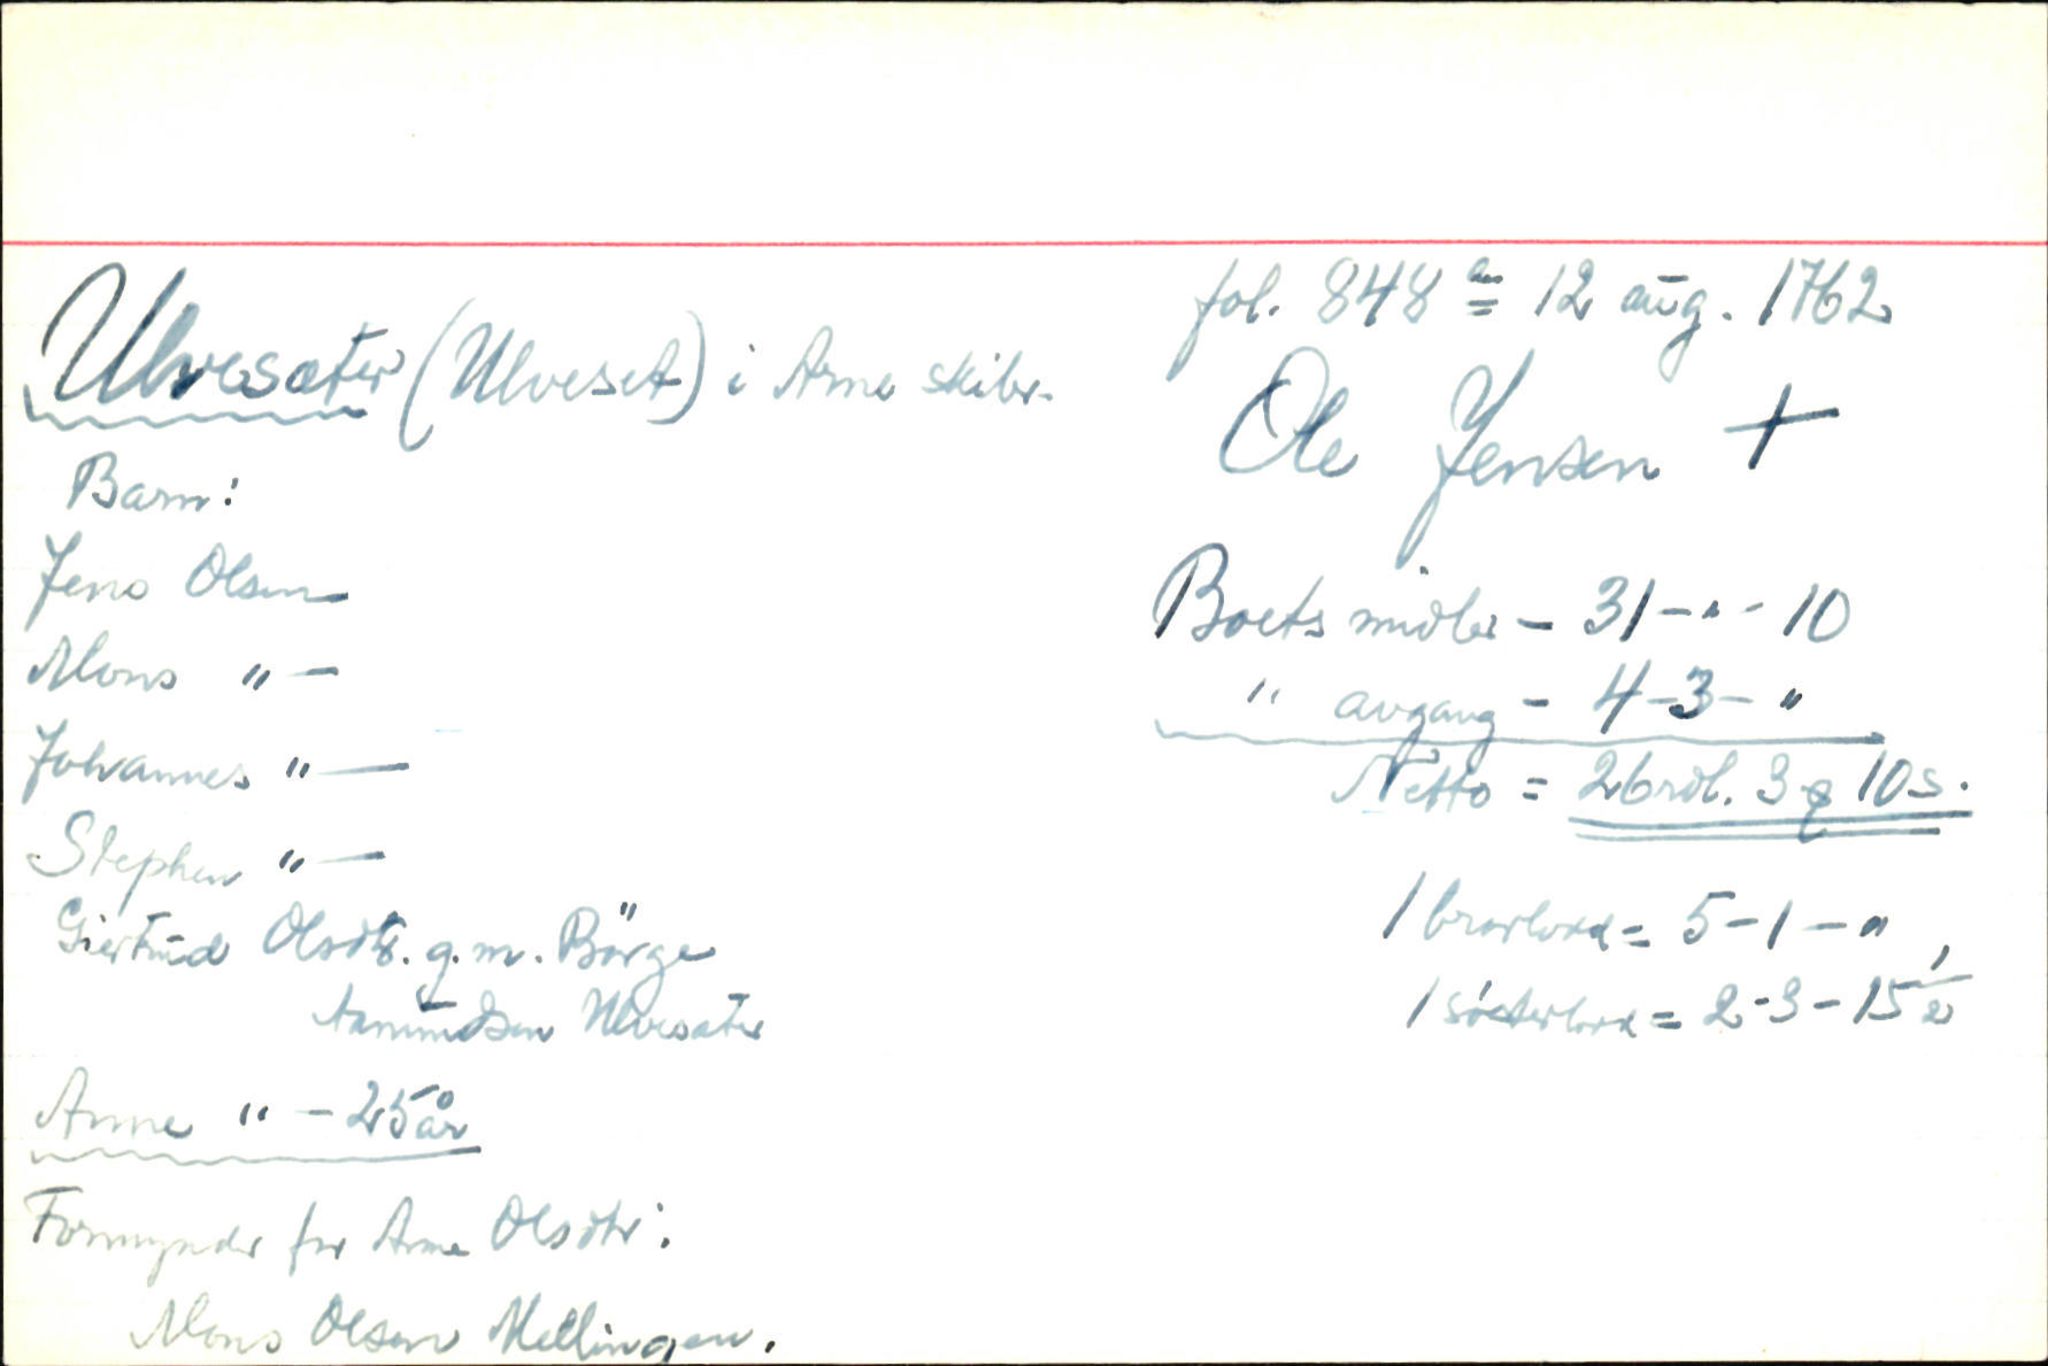 fol. 848 a 12 aug. 1762
Ulvesæter (Ulveset) i Arne skibr.
Ole Jensen +
Barn:
Jens Olsen
Mons " —
Johannes " —
Stephen " —
Giertrud Olsdtr. g.m. Börge
Aamundsen Ulvesæter
Anne " — 25 år
Formynder for Anne Olsdtr:
Mons Olsen Mellingen.
Boets midler — 31 — " — 10
" avgang — 4 — 3 — "
Netto = 26 rdl. 3 q 10 s.
1 brorlodd = 5 — 1 — "
1 sösterlodd = 2 — 3 — 15 1/2